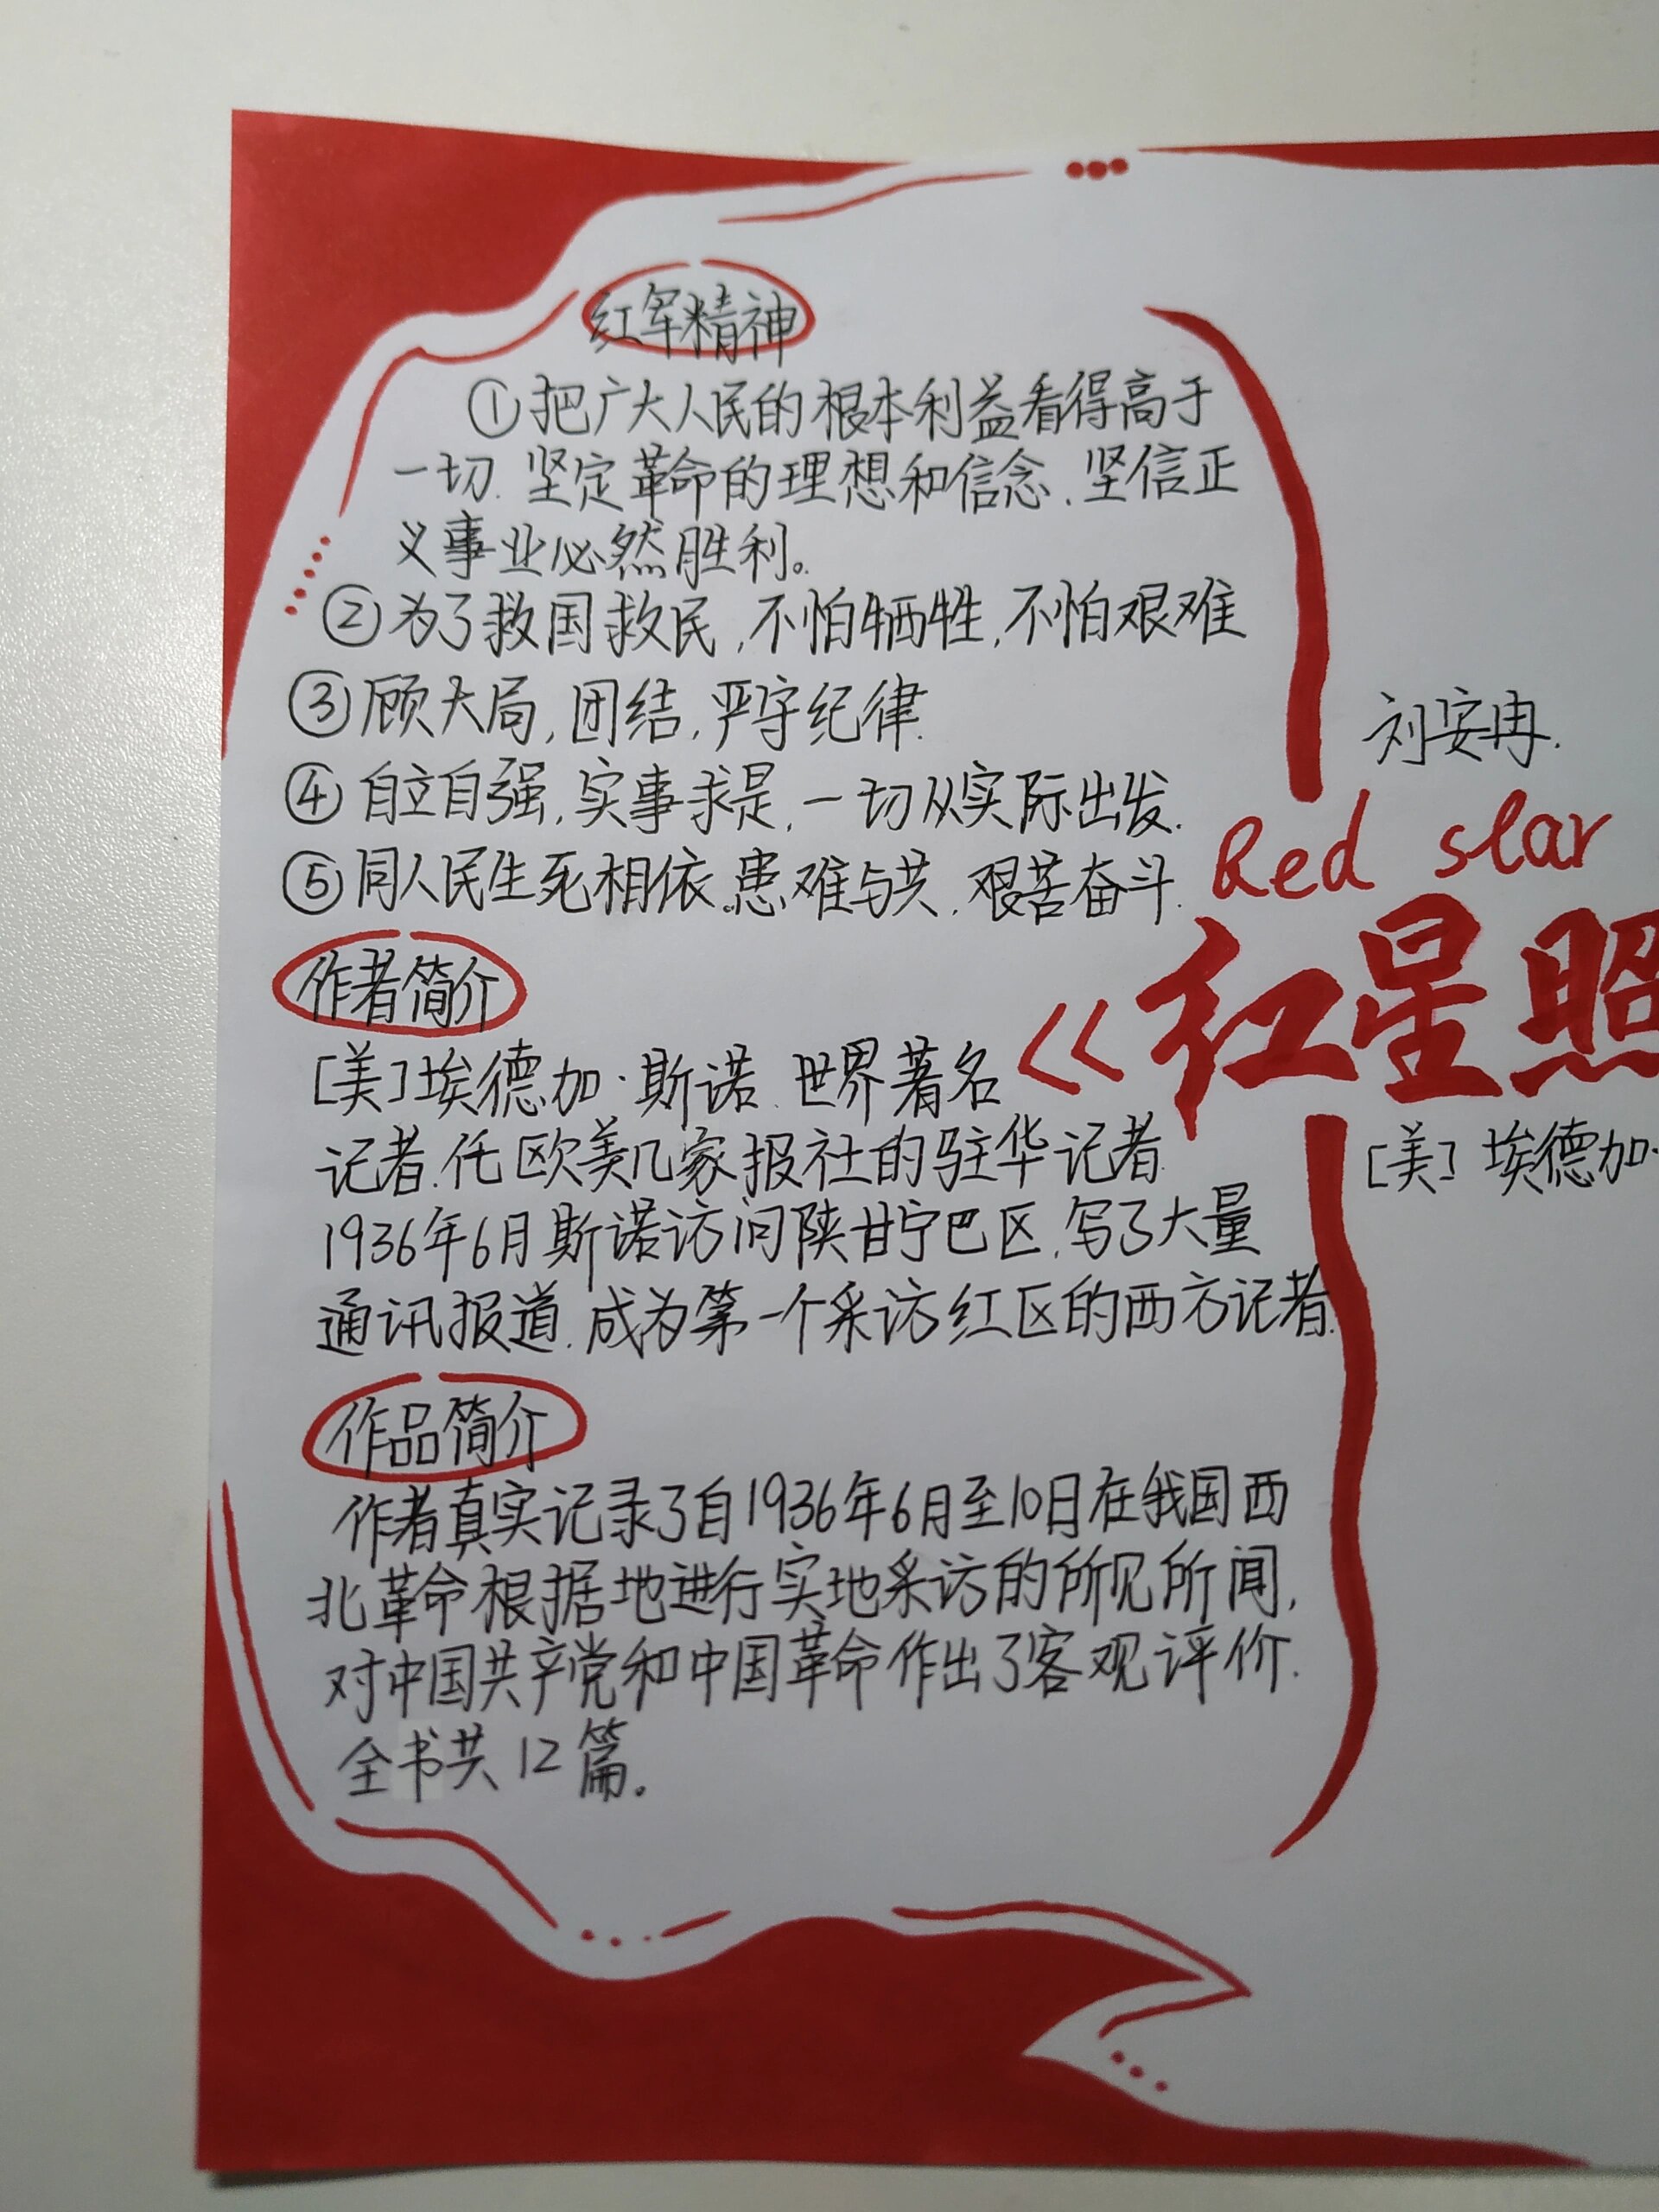 红军精神
①把广大人民的根本利益看得高于
一切.坚定革命的理想和信念.坚信正
义事业必然胜利。
②为了救国救民,不怕牺牲,不怕艰难
③顾大局,团结,严守纪律.
④自立自强,实事求是,一切从实际出发.
⑤同人民生死相依.患难与共.艰苦奋斗.
作者简介
[美]埃德加·斯诺.世界著名
记者.任欧美几家报社的驻华记者.
1936年6月斯诺访问陕甘宁巴区.写了大量
通讯报道.成为第一个采访红区的西方记者.
作品简介
作者真实记录了自1936年6月至10日在我国西
北革命根据地进行实地采访的所见所闻,
对中国共产党和中国革命作出了客观评价.
全书共12篇。
刘安冉.
Red star
《红星照
[美]埃德加·